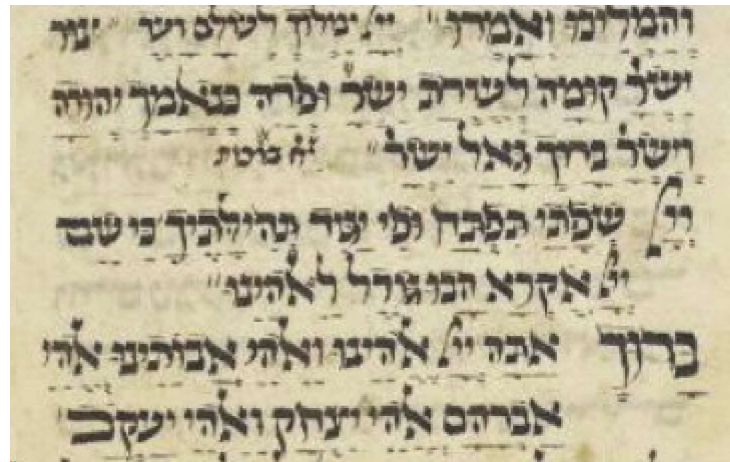 והמליכו ואמרו יי׳ ימלוך לעולם ועד צור
ישר׳ קומה לעזרת ישר׳ ופדה כנאמך יהודה
וישר׳ ברוך גאל ישר׳
יי׳ שפתי תפתח ופי יגיד תהילתיך כי שם
יי׳ אקרא הבו גודל לאהינו
ברוך אתה יי׳ אהינו ואהי אבותינו אהי
אברהם אהי יצחק ואהי יעקב